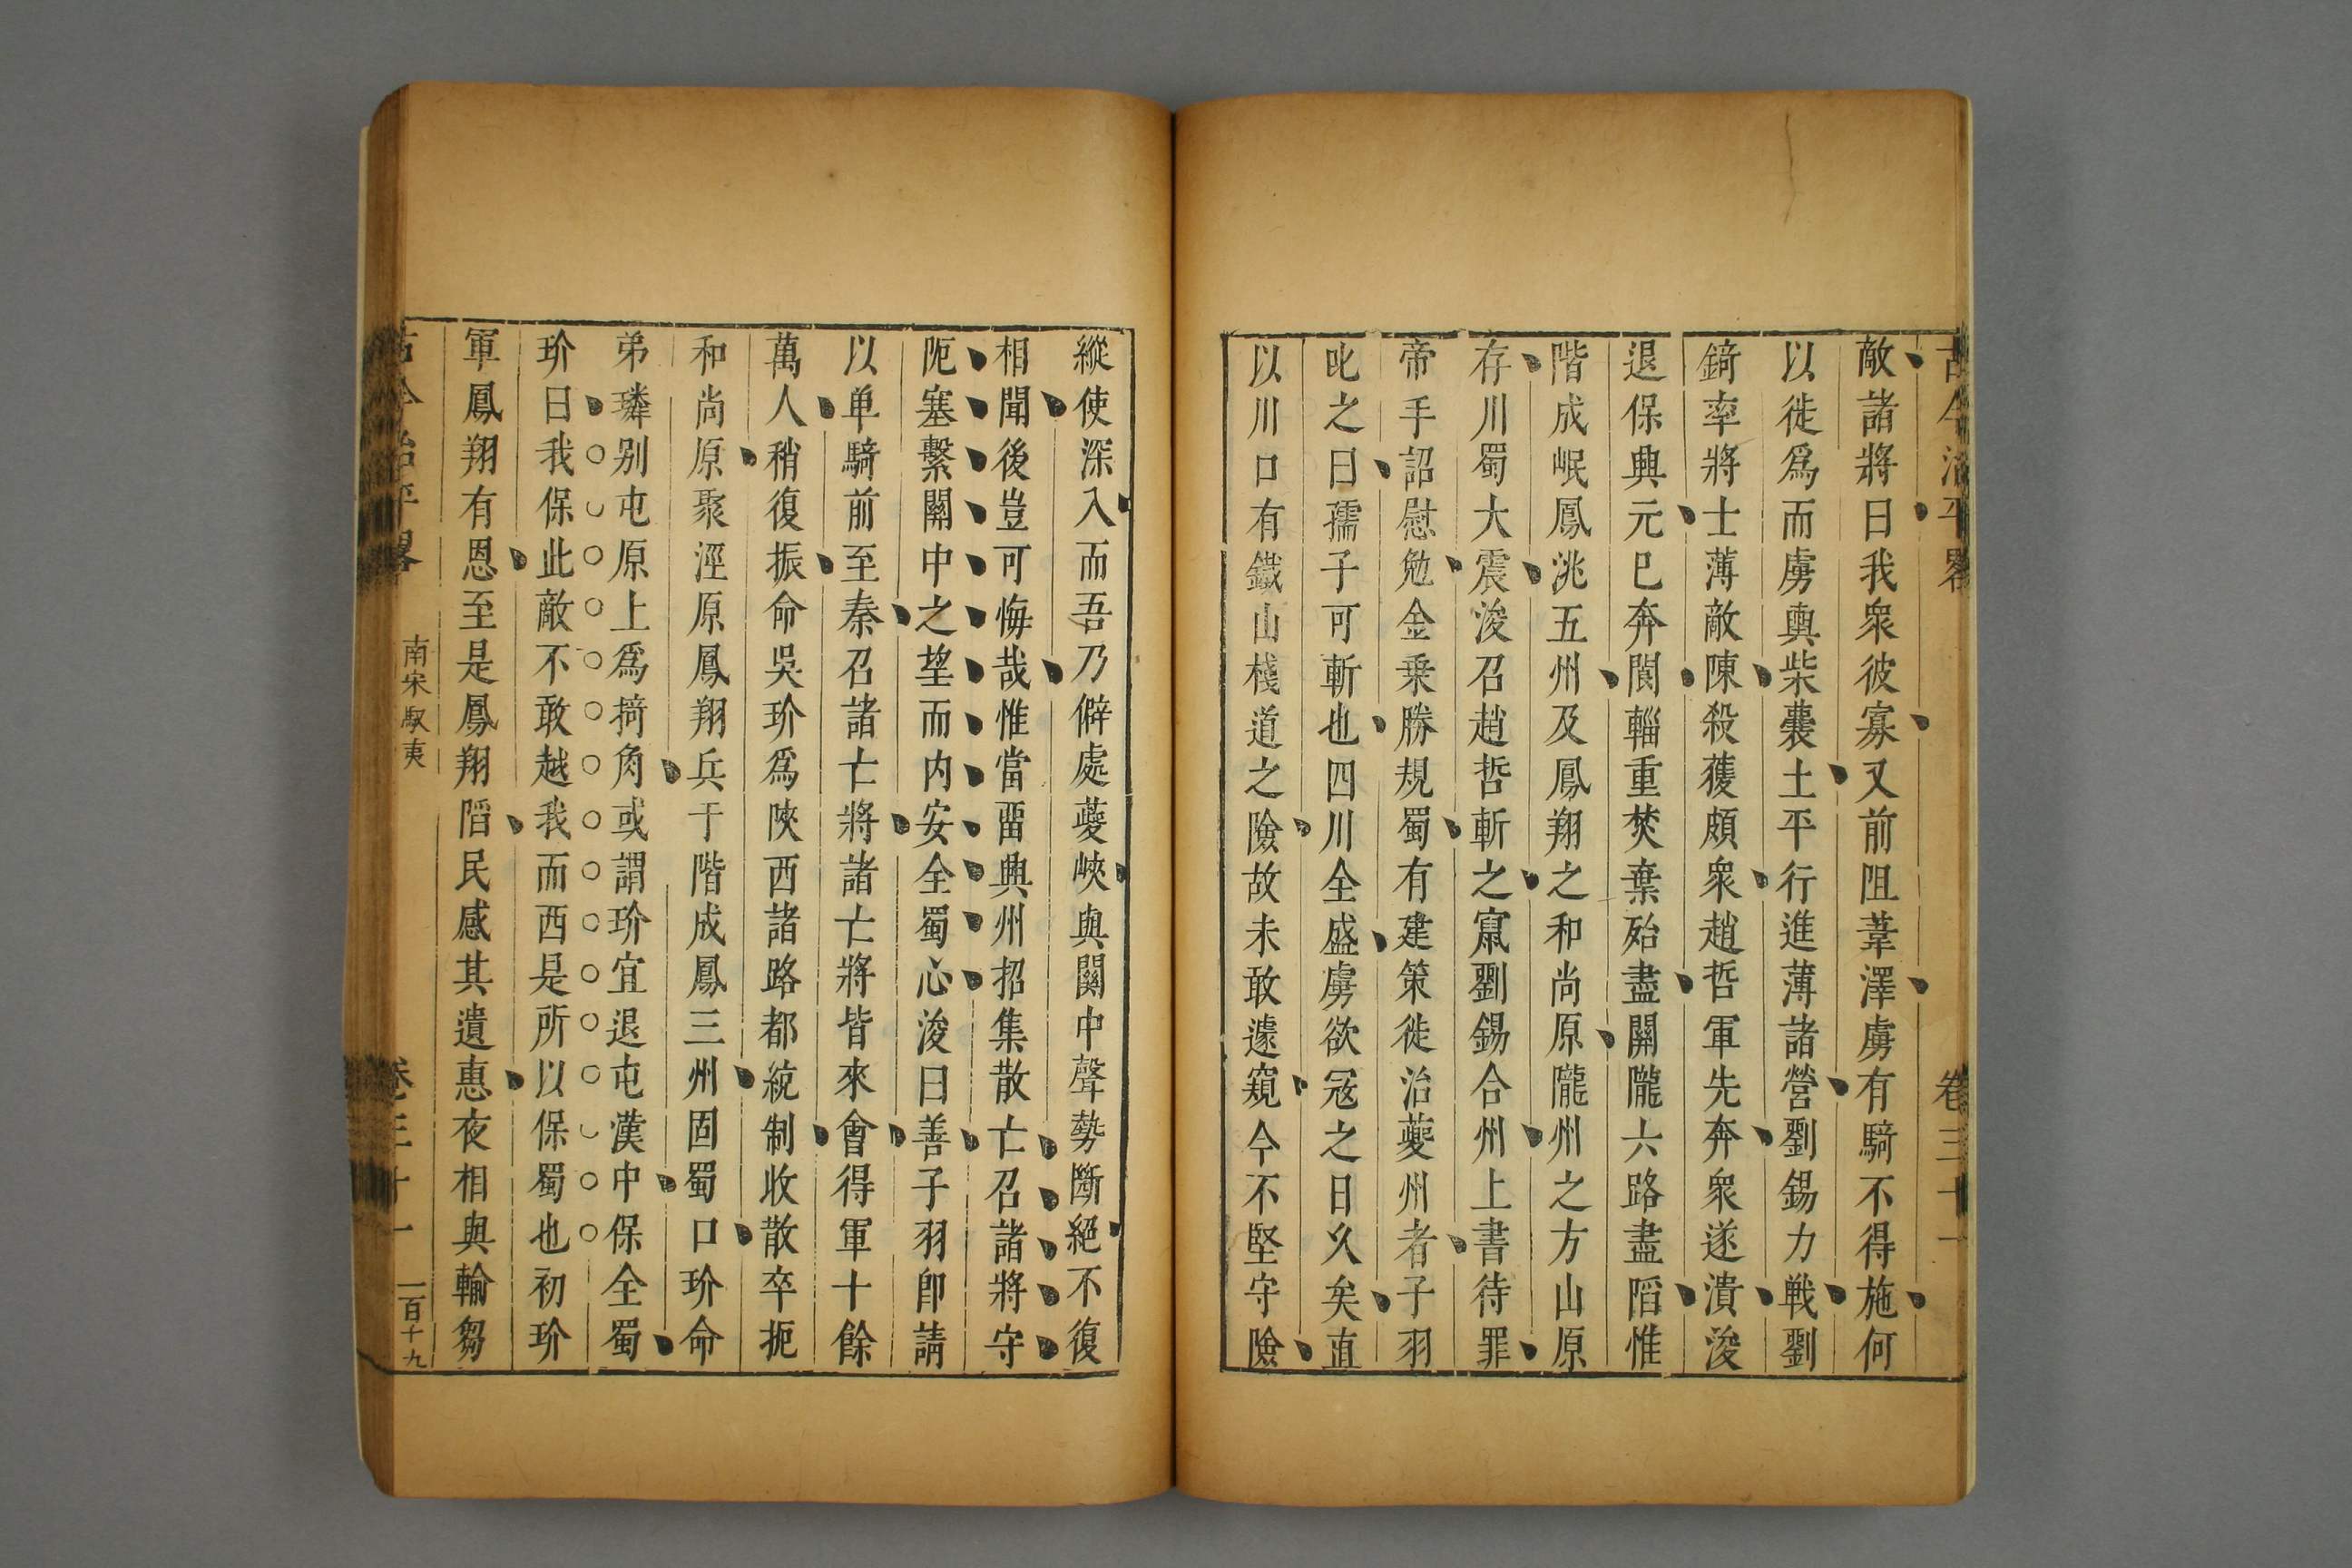 古今治平畧　卷三十一
敵諸將曰我衆彼寡又前阻葦澤虜有騎不得施何
以徙爲而虜輿柴囊土平行進薄諸營劉錫力戰劉
錡率將士薄敵陳殺獲頗衆趙哲軍先奔衆遂潰浚
退保興元已奔閬輜重焚棄殆盡關隴六路盡䧟惟
階成岷鳳洮五州及鳳翔之和尚原隴州之方山原
存川蜀大震浚召趙哲斬之竄劉錫合州上書待罪
帝手詔慰勉金乗勝規蜀有建策徙治夔州者子羽
叱之曰孺子可斬也四川全盛虜欲冦之日乆矣直
以川口有鐵山棧道之險故未敢遽窺今不堅守險
縱使深入而吾乃僻處夔峽與關中聲勢斷絕不復
相聞後豈可悔哉惟當畱興州招集散亡召諸將守
阨塞繫關中之望而内安全蜀心浚曰善子羽卽請
以单騎前至秦召諸亡將諸亡將皆來會得軍十餘
萬人稍復振命吳玠爲陜西諸路都統制收散卒扼
和尚原聚涇原鳳翔兵于階成鳳三州固蜀口玠命
弟璘别屯原上爲掎角或謂玠宜退屯漢中保全蜀
玠曰我保此敵不敢越我而西是所以保蜀也初玠
軍鳳翔有恩至是鳳翔䧟民感其遺惠夜相與輸芻
古今治平畧　南宋馭夷　卷三十一　一百十九